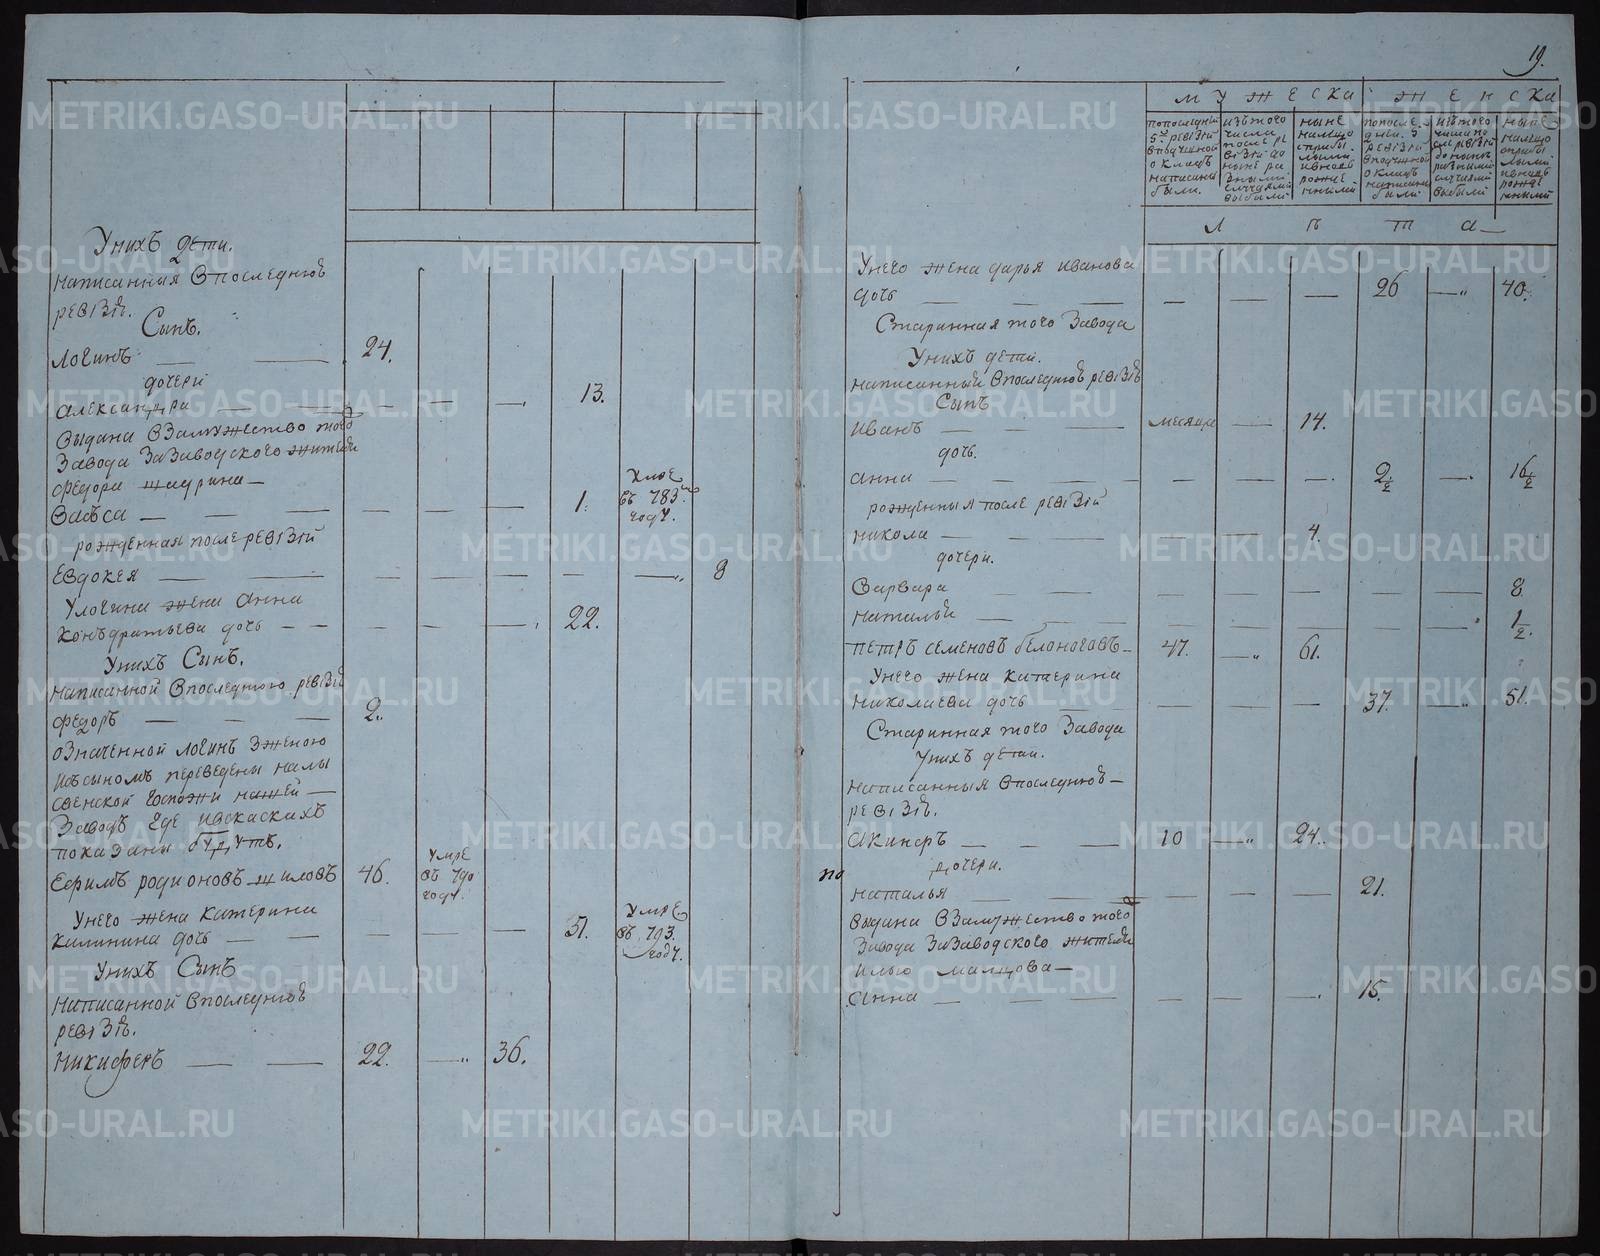 Унихъ дети.
написанныя Впоследнюю
ревiзiю.
Сынъ.
Логинъ — — 24.
дочери
александра — — — — — 13.
Выдана Взамужество того
Завода ЗаЗаводского жителя
Федора шадрина —
Васъса — — — — — — 1. Умре въ 783м году.
рожденная после ревiзiй
Евдокея — — — — — — — 8
Улогина жена анна
конъдратьева дочь — — — — — 22.
Унихъ Сынъ.
написанной Впоследнюю ревiзiю
Федоръ — — — 2.
означенной логинъ Зженою
исъсыномъ переведены налы
свенской Госпожи нашей —
Заводъ Где ивскаскахъ
показаны будутъ.
Ефимъ родионовъ шиловъ 46. умре въ 790 году.
Унего жена катерина
калинина дочь — — — — — 51. умре въ 793. году.
Унихъ Сынъ
написанной Впоследнюю
ревiзiю.
никифоръ — — 22. — 36.
19.
мужеска женска
попоследней 5й ревiзiи вподушной окладъ написаны были.
изътого числа после ревiзiи доныне разными случаями выбыли
ныне налицо сприбылыми ивновь рожденными
попоследней 5 ревiзiи вподушной окладъ написаны были
изътого числа после ревiзiи доныне разными случаями выбыли
ныне налицо сприбылыми ивновь рожденными
лѣта —
Унего жена дарья иванова
дочь — — — — — — 26 — 40.
Старинная того Завода
Унихъ дети.
написанныи Впоследнюю ревiзiю
Сынъ
иванъ — — — месяца — 14.
дочь.
анна — — — — — — 2 1/2 — 16 1/2
рожденныя после ревiзiй
никола — — — — — 4.
дочери.
Варвара — — — — — — — — 8
наталья — — — — — — — — 1/2.
Петръ семеновъ белоноговъ — 47. — 61.
Унего жена катерина
николаева дочь — — — — — 37. — 51.
Старинная того Завода
Унихъ дети.
написанныя Впоследнюю —
ревiзiю.
акинфъ — — — 10 — 24.
дочери.
по
наталья — — — — — 21.
выдана Взамужество того
Завода ЗаЗаводского жителя
илью малцова —
анна — — — — — — 15.